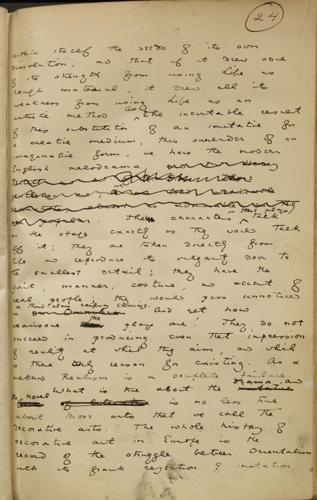 24
within itself the seeds of its own
dissolution, and that if it drew some
of its strength from using Life as
rough material, it drew all its
weakness from using Life as an
artistic method. As the inevitable result
of this substitution of an imitative for
a creative medium, this surrender of an
imaginative form, we have the modern
English melodrama.
The characters in these plays talk
on the stage exactly as they would talk
off it; they are taken directly from
life and reproduce its vulgarity down to
the smallest detail; they have the
gait, manner, costume, and accent of
real people; they would pass unnoticed
in a third class railway carriage.
And yet how
wearisome the plays are! They do not
succeed in producing even that impression
of reality at which they aim, and which
is their only reason for existing. As a
method Realism is a complete failure.
What is true about the drama and
the novel is no less true
about those arts that we call the
decorative arts. The whole history of
decorative art in Europe is the
record of the struggle between Orientalism
with its frank rejection of imitation